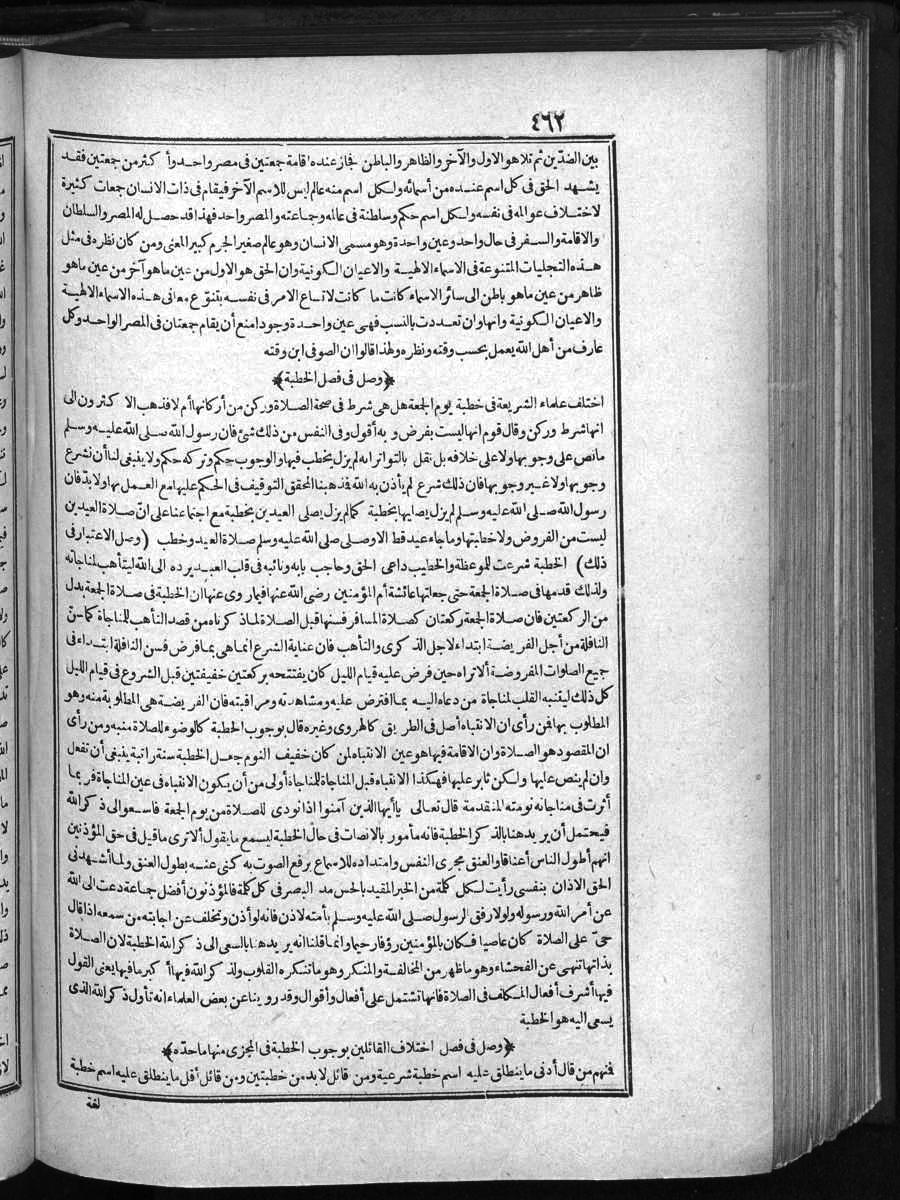 ٤٦٢
بين الضدّين ثم تلا هو الاول والآخر والظاهر والباطن فجاز عنده اقامة جمعتين فى مصر واحد وأكثر من جمعتين فقد
يشهد الحق فى كل اسم عنده من أسمائه ولكل اسم منه عالم ليس للاسم الآخر فيقام فى ذات الانسان جمعات كثيرة
لاختلاف عوالمه فى نفسه ولكل اسم حكم وسلطنة فى عالمه وجماعته والمصر واحد فهذا قد حصل له المصر والسلطان
والاقامة والسفر فى حال واحد وعين واحدة وهو مسمى الانسان وهو عالم صغير الجرم كبير المعنى ومن كان نظره فى مثل
هذه التجليات المتنوعة فى الاسماء الالهية والاعيان الكونية وان الحق هو الاول من عين ما هو آخر من عين ما هو
ظاهر من عين ما هو باطن الى سائر الاسماء كانت ما كانت لاتساع الامر فى نفسه بتنوّع معانى هذه الاسماء الالهية
والاعيان الكونية وانها وان تعددت بالنسب فهى عين واحدة وجودا منع أن يقام جمعتان فى المصر الواحد وكل
عارف من أهل الله يعمل بحسب وقته ونظره ولهذا قالوا ان الصوفى ابن وقته
﴿وصل فى فصل الخطبة﴾
اختلف علماء الشريعة فى خطبة يوم الجمعة هل هى شرط فى صحة الصلاة وركن من أركانها أم لا فذهب الاكثرون الى
انها شرط وركن وقال قوم انها ليست بفرض وبه أقول وفى النفس من ذلك شئ فان رسول الله صلى الله عليه وسلم
ما نص على وجوبها ولا على خلافه بل نقل بالتواتر انه لم يزل يخطب فيها والوجوب حكم وتركه حكم ولا ينبغى لنا أن نشرع
وجوبها ولا غير وجوبها فان ذلك شرع لم يأذن به الله فذهبنا المحقق التوقيف فى الحكم عليها مع العمل بها ولا بدّ فان
رسول الله صلى الله عليه وسلم لم يزل يصليها بخطبة كما لم يزل يصلى العيدين بخطبة مع اجتماعنا على انّ صلاة العيدين
ليست من الفروض ولا خطبتها وما جاء عيد قط الا وصلى صلى الله عليه وسلم صلاة العيد وخطب (وصل الاعتبار فى
ذلك) الخطبة شرعت للموعظة والخطيب داعى الحق وحاجب بابه ونائبه فى قلب العبد يرده الى الله ليتأهب لمناجاته
ولذلك قدمها فى صلاة الجمعة حتى جعلتها عائشة أم المؤمنين رضى الله عنها فيما روى عنها ان الخطبة فى صلاة الجمعة بدل
من الركعتين فان صلاة الجمعة ركعتان كصلاة المسافر فسنها قبل الصلاة لما ذكرناه من قصد التأهب للمناجاة كما سنّ
النافلة من أجل الفريضة ابتداء لاجل الذكرى والتأهب فان عناية الشرع انما هى بما فرض فسن النافلة ابتداء فى
جميع الصلوات المفروضة ألا تراه حين فرض عليه قيام الليل كان يفتتحه بركعتين خفيفتين قبل الشروع فى قيام الليل
كل ذلك ليتنبه القلب لمناجاة من دعاه اليه بما افترض عليه ومشاهدته ومراقبته فان الفريضة هى المطلوبة منه وهو
المطلوب بها فمن رأى ان الانتباه أصل فى الطريق كالهروى وغيره قال بوجوب الخطبة كالوضوء للصلاة منبه ومن رأى
ان المقصود هو الصلاة وان الاقامة فيها هو عين الانتباه لمن كان خفيف النوم جعل الخطبة سنة راتبة ينبغى أن تفعل
وان لم ينص عليها ولكن ثابر عليها فهكذا الانتباه قبل المناجاة للمناجاة أولى من أن يكون الانتباه فى عين المناجاة فربما
أثرت فى مناجاته نومته المتقدمة قال تعالى يا أيها الذين آمنوا اذا نودى للصلاة من يوم الجمعة فاسعوا الى ذكر الله
فيحتمل أن يريد هنا بالذكر الخطبة فانه مأمور بالانصات فى حال الخطبة ليسمع ما يقول ألا ترى ما قيل فى حق المؤذنين
انهم أطول الناس أعناقا والعنق مجرى النفس وامتداده للاسماع برفع الصوت به كنى عنه بطول العنق ولما أشهدنى
الحق الاذان بنفسى رأيت لكل كلمة من الخير المقيد بالحس مد البصر فى كل كلمة فالمؤذنون أفضل جماعة دعت الى الله
عن أمر الله ورسوله ولولا رفق الرسول صلى الله عليه وسلم بأمته لاذن فانه لو أذن وتخلف عن اجابته من سمعه اذا قال
حىّ على الصلاة كان عاصيا فكان بالمؤمنين رؤفا رحيما وانما قلنا انه يريد هنا بالسعى الى ذكر الله الخطبة لان الصلاة
بذاتها تنهى عن الفحشاء وهو ما ظهر من المخالفة والمنكر وهو ما تنكره القلوب ولذكر الله فيها أكبر ما فيها يعنى القول
فيها أشرف أفعال المكلف فى الصلاة فانها تشتمل على أفعال وأقوال وقد روينا عن بعض العلماء انه تأول ذكر الله الذى
يسعى اليه هو الخطبة
﴿وصل فى فصل اختلاف القائلين بوجوب الخطبة فى المجزى منها ما حدّه﴾
فمنهم من قال أدنى ما ينطلق عليه اسم خطبة شرعية ومن قائل لا بد من خطبتين ومن قائل أقل ما ينطلق عليه اسم خطبة
لغة